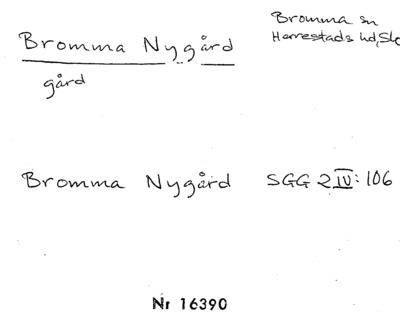 Bromma Nygård
Bromma sn
Harrestads hd, Sk
gård
Bromma Nygård SGG 2 IV: 106
Nr 16390